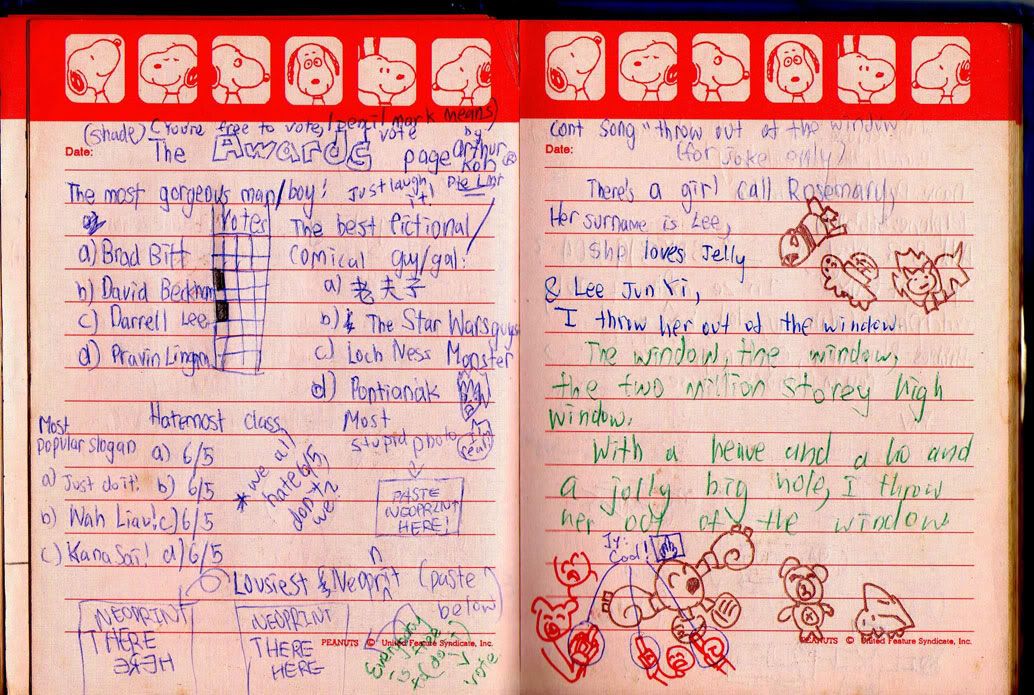 (shade) (You're free to vote) (pencil mark means) vote
Date: The Awards page by Arthur Koh
The most gorgeous man/boy! Just laugh
votes The best fictional/
a) Brad Bitt comical guy/gal:
b) David Beckham a) 老夫子
c) Darrell Lee b) The Star Wars guys
d) Pravin Lingam c) Loch Ness Monster
d) Pontianak
Most popular slogan
a) Just do it!
b) Wah Liau!
c) Kana Sai!
Hatemost class
a) 6/5
b) 6/5
c) 6/5
d) 6/5
* we all hate 6/5, don't we?
Most stupid photo
PASTE NEOPRINT HERE!
Lousiest Neoprint (paste below)
NEOPRINT THERE HERE
NEOPRINT THERE HERE
Everybody is free to vote
PEANUTS © United Feature Syndicate, Inc.
cont song "throw out of the window"
Date: (for joke only)
There's a girl call Rosemary,
Her surname is Lee,
She loves Jelly
& Lee Jun Xi,
I throw her out of the window
The window, the window,
the two million storey high
window.
With a heave and a ho and
a jolly big hole, I throw
her out of the window
Jy: Cool!
PEANUTS © United Feature Syndicate, Inc.